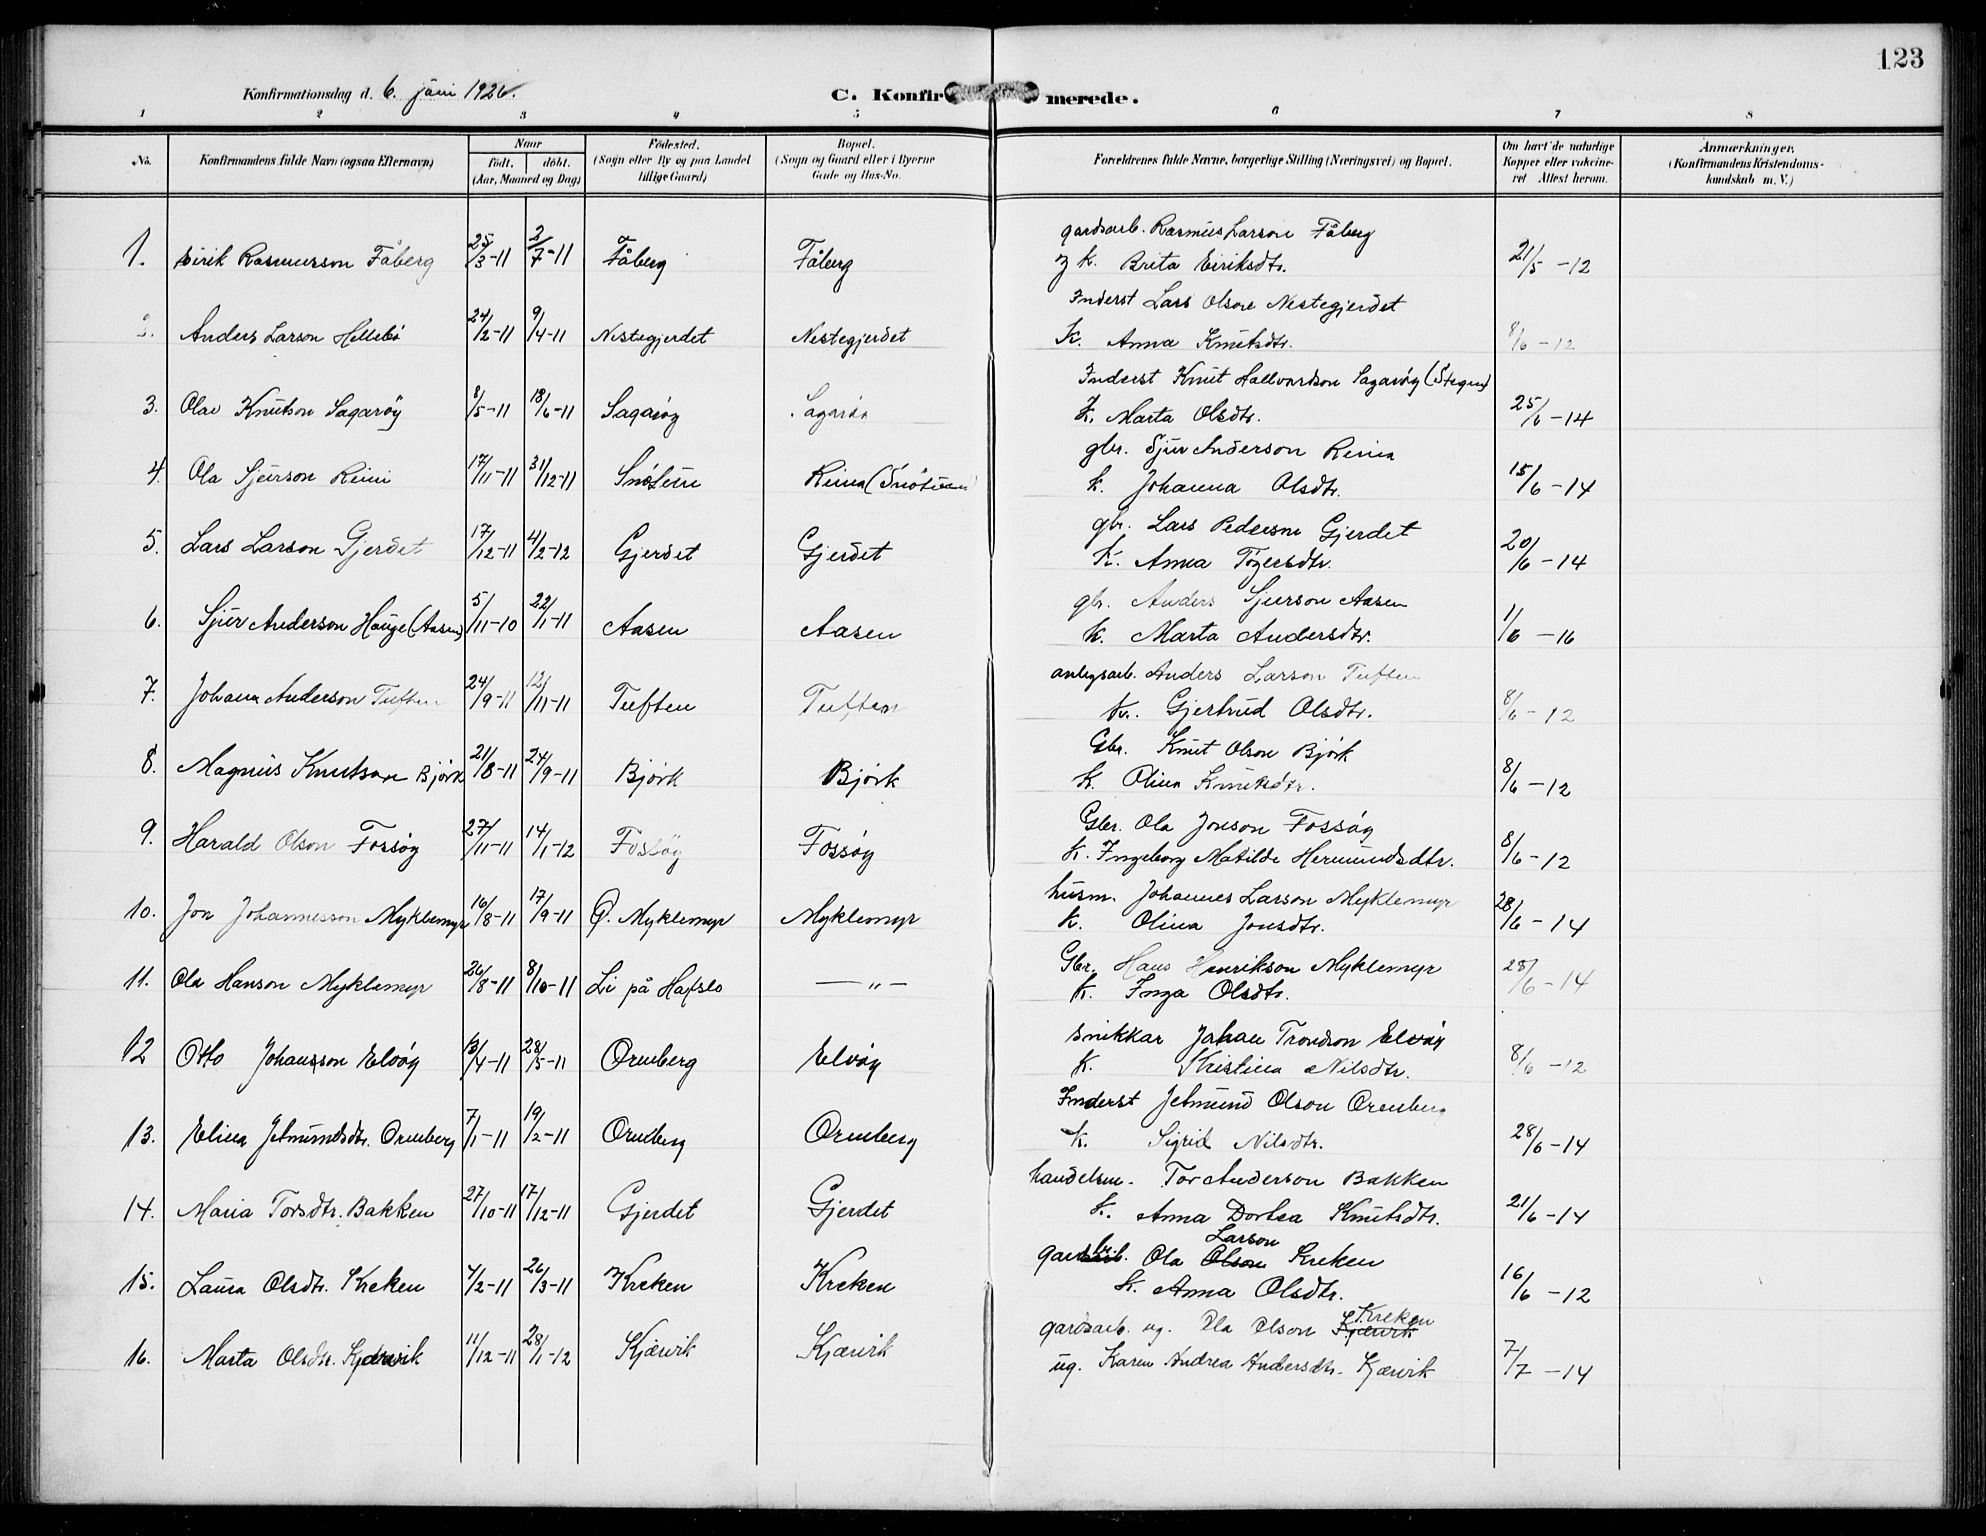 123
Konfirmationsdag d. 6. juni 1926.
C. Konfirmerede.
1 2 3 4 5 6 7 8
No.
Konfirmandens fulde Navn (ogsaa Efternavn)
Naar
født. døbt.
(Aar, Maaned og Dag)
Fødested.
(Sogn eller By og paa Landet
tillige Gaard)
Bopæl.
(Sogn og Gaard eller i Byerne
Gade og Hus-No.
Forældrenes fulde Navne, borgerlige Stilling (Næringsvei) og Bopæl.
Om havt de naturlige
Kopper eller vakcine-
ret Attest herom.
Anmærkninger.
(Konfirmandens Kristendoms-
kundskab m. V.)
gardsarb. Rasmus Larson Fåberg
1. Eirik Rasmusson Fåberg 25/3-11 2/7-11 Fåberg Fåberg k. Brita Eiriksdtr. 21/5-12
Inderst Lars Olson Nestegjerdet
2. Anders Larson Hellebø 24/2-11 9/4-11 Nestegjerdet Nestegjerdet K. Anna Knutsdtr. 8/6-12
Inderst Knut Hallvardson Sagarøy (Stegen)
3. Olav Knutson Sagarøy 8/5-11 18/6-11 Sagarøy Sagarøy k. Marta Olsdtr. 25/6-14
gbr. Sjur Anderson Reina
4. Ola Sjurson Reini 17/11-11 31/12-11 Snøtun Reina (Snøtun) k. Johanna Olsdtr. 15/6-14
gbr. Lars Pederson Gjerdet
5. Lars Larson Gjerdet 17/12-11 4/2-12 Gjerdet Gjerdet K. Anna Tøgersdtr. 20/6-14
gbr. Anders Sjurson Aasen
6. Sjur Anderson Hauge (Aasen) 5/11-10 22/1-11 Aasen Aasen k. Marta Andersdtr. 1/6-16
anlegsarb. Anders Larson Tuften
7. Johan Anderson Tuften 24/9-11 12/11-11 Tuften Tuften k. Gjertrud Olsdtr. 8/6-12
Gbr. Knut Olson Bjørk
8. Magnus Knutson Bjørk 21/8-11 24/9-11 Bjørk Bjørk k. Olina Knutsdtr. 8/6-12
Gbr. Ola Jonson Fossøy
9. Harald Olson Fossøy 27/11-11 14/1-12 Fossøy Fossøy k. Ingeborg Matilde Hermundsdtr. 8/6-12
husm. Johannes Larson Myklemyr
10. Jon Johannesson Myklemyr 16/8-11 17/9-11 Ø. Myklemyr Myklemyr k. Olina Jonsdtr. 28/6-14
Gbr. Hans Henrikson Myklemyr
11. Ola Hanson Myklemyr 26/8-11 8/10-11 Li på Hafslo —〃— K. Inga Olsdtr. 28/6-14
snikkar Johan Trondson Elvøy
12 Otto Johansson Elvøy 13/4-11 28/5-11 Ormberg Elvøy K. Kristina Nilsdtr. 8/6-12
Inderst Jetmund Olson Ormberg
13. Elina Jetmundsdtr. Ormberg 7/1-11 19/2-11 Ormberg Ormberg k. Sigrid Nilsdtr. 28/6-14
handelsm. Tor Anderson Bakken
14. Maria Torsdtr. Bakken 27/10-11 17/12-11 Gjerdet Gjerdet k. Anna Dortea Knutsdtr. 21/6-14
Larson
gardbr. Ola Olson Kreken
15. Laura Olsdtr. Kreken 4/2-11 26/3-11 Kreken Kreken k. Anna Olsdtr. 16/6-12
Kreken
gardsarb. ug. Ola Olson Kjærvik
16. Marta Olsdtr. Kjærvik 11/12-11 28/1-12 Kjærvik Kjærvik ug. Karen Andrea Andersdtr. Kjærvik 7/7-14